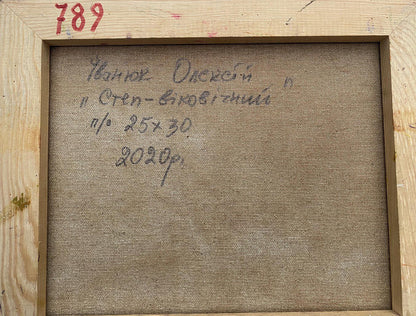 789
Іванюк Олексій
„Степ-віковічний"
п/о 25х30
2020р.